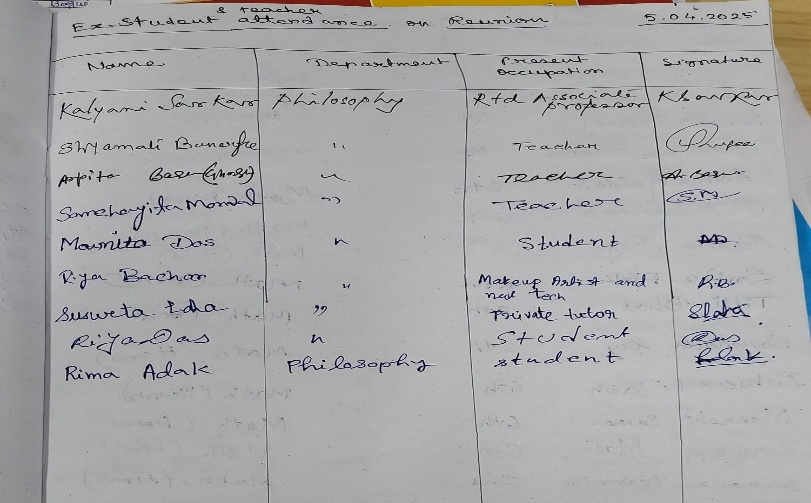 & teacher
Ex-Student attendance on Reunion 5.04.2025
Name Department Present Occupation Signature
Kalyani Sarkar Philosophy Rtd Associate professor KSarkar
Shyamali Banerjee " Teacher
Arpita Basu (Ghosh) " Teacher A. Basu
Mondal " Teacher SM
Moumita Das " Student MD.
Riya Bachar " Makeup Artist and nail tech R.B.
Susweta Laha " Private tutor SLaha.
Riya Das " Student Das
Rima Adak Philosophy student